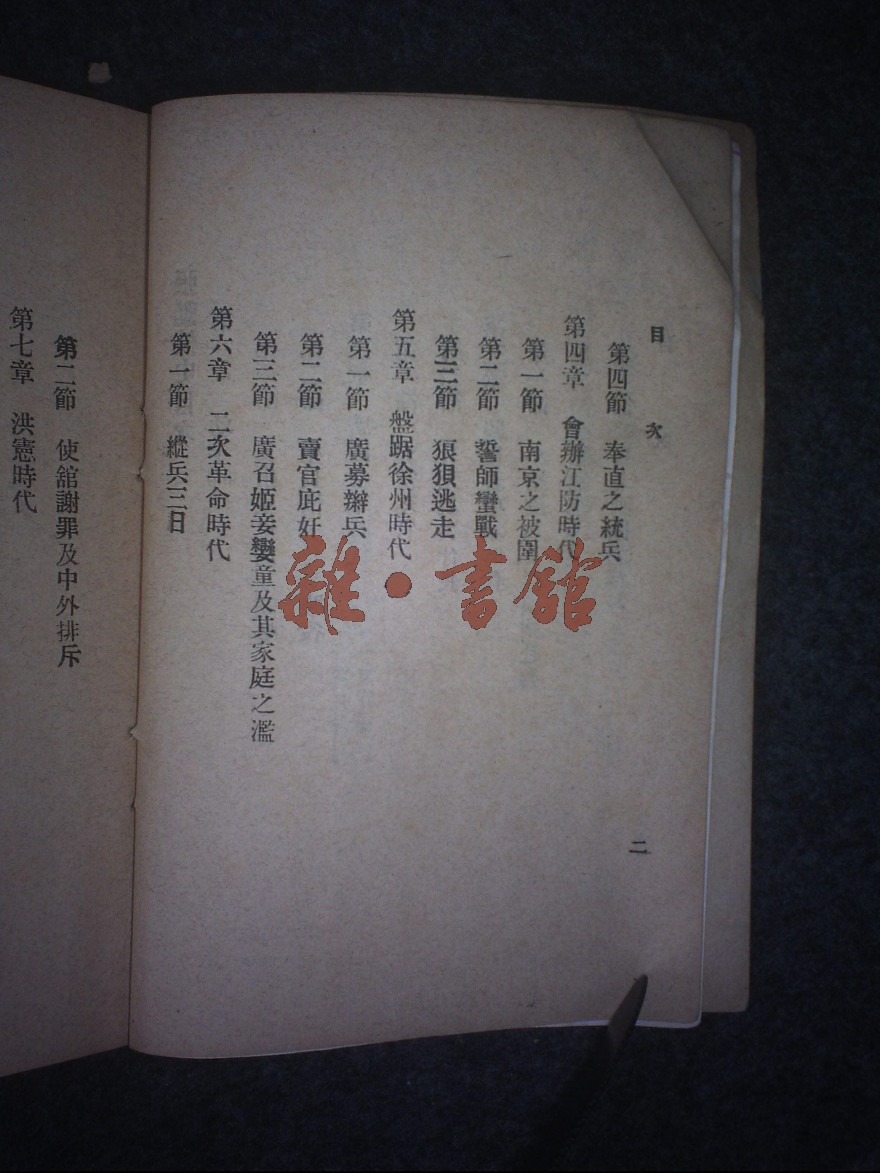 目次
第四節　奉直之統兵
第四章　會辦江防時代
第一節　南京之被圍
第二節　誓師蠻戰
第三節　狼狽逃走
第五章　盤踞徐州時代
第一節　廣募辮兵
第二節　賣官庇奸
第三節　廣召姬妾孌童及其家庭之濫
第六章　二次革命時代
第一節　縱兵三日
二
第二節　使舘謝罪及中外排斥
第七章　洪憲時代
雜·書館